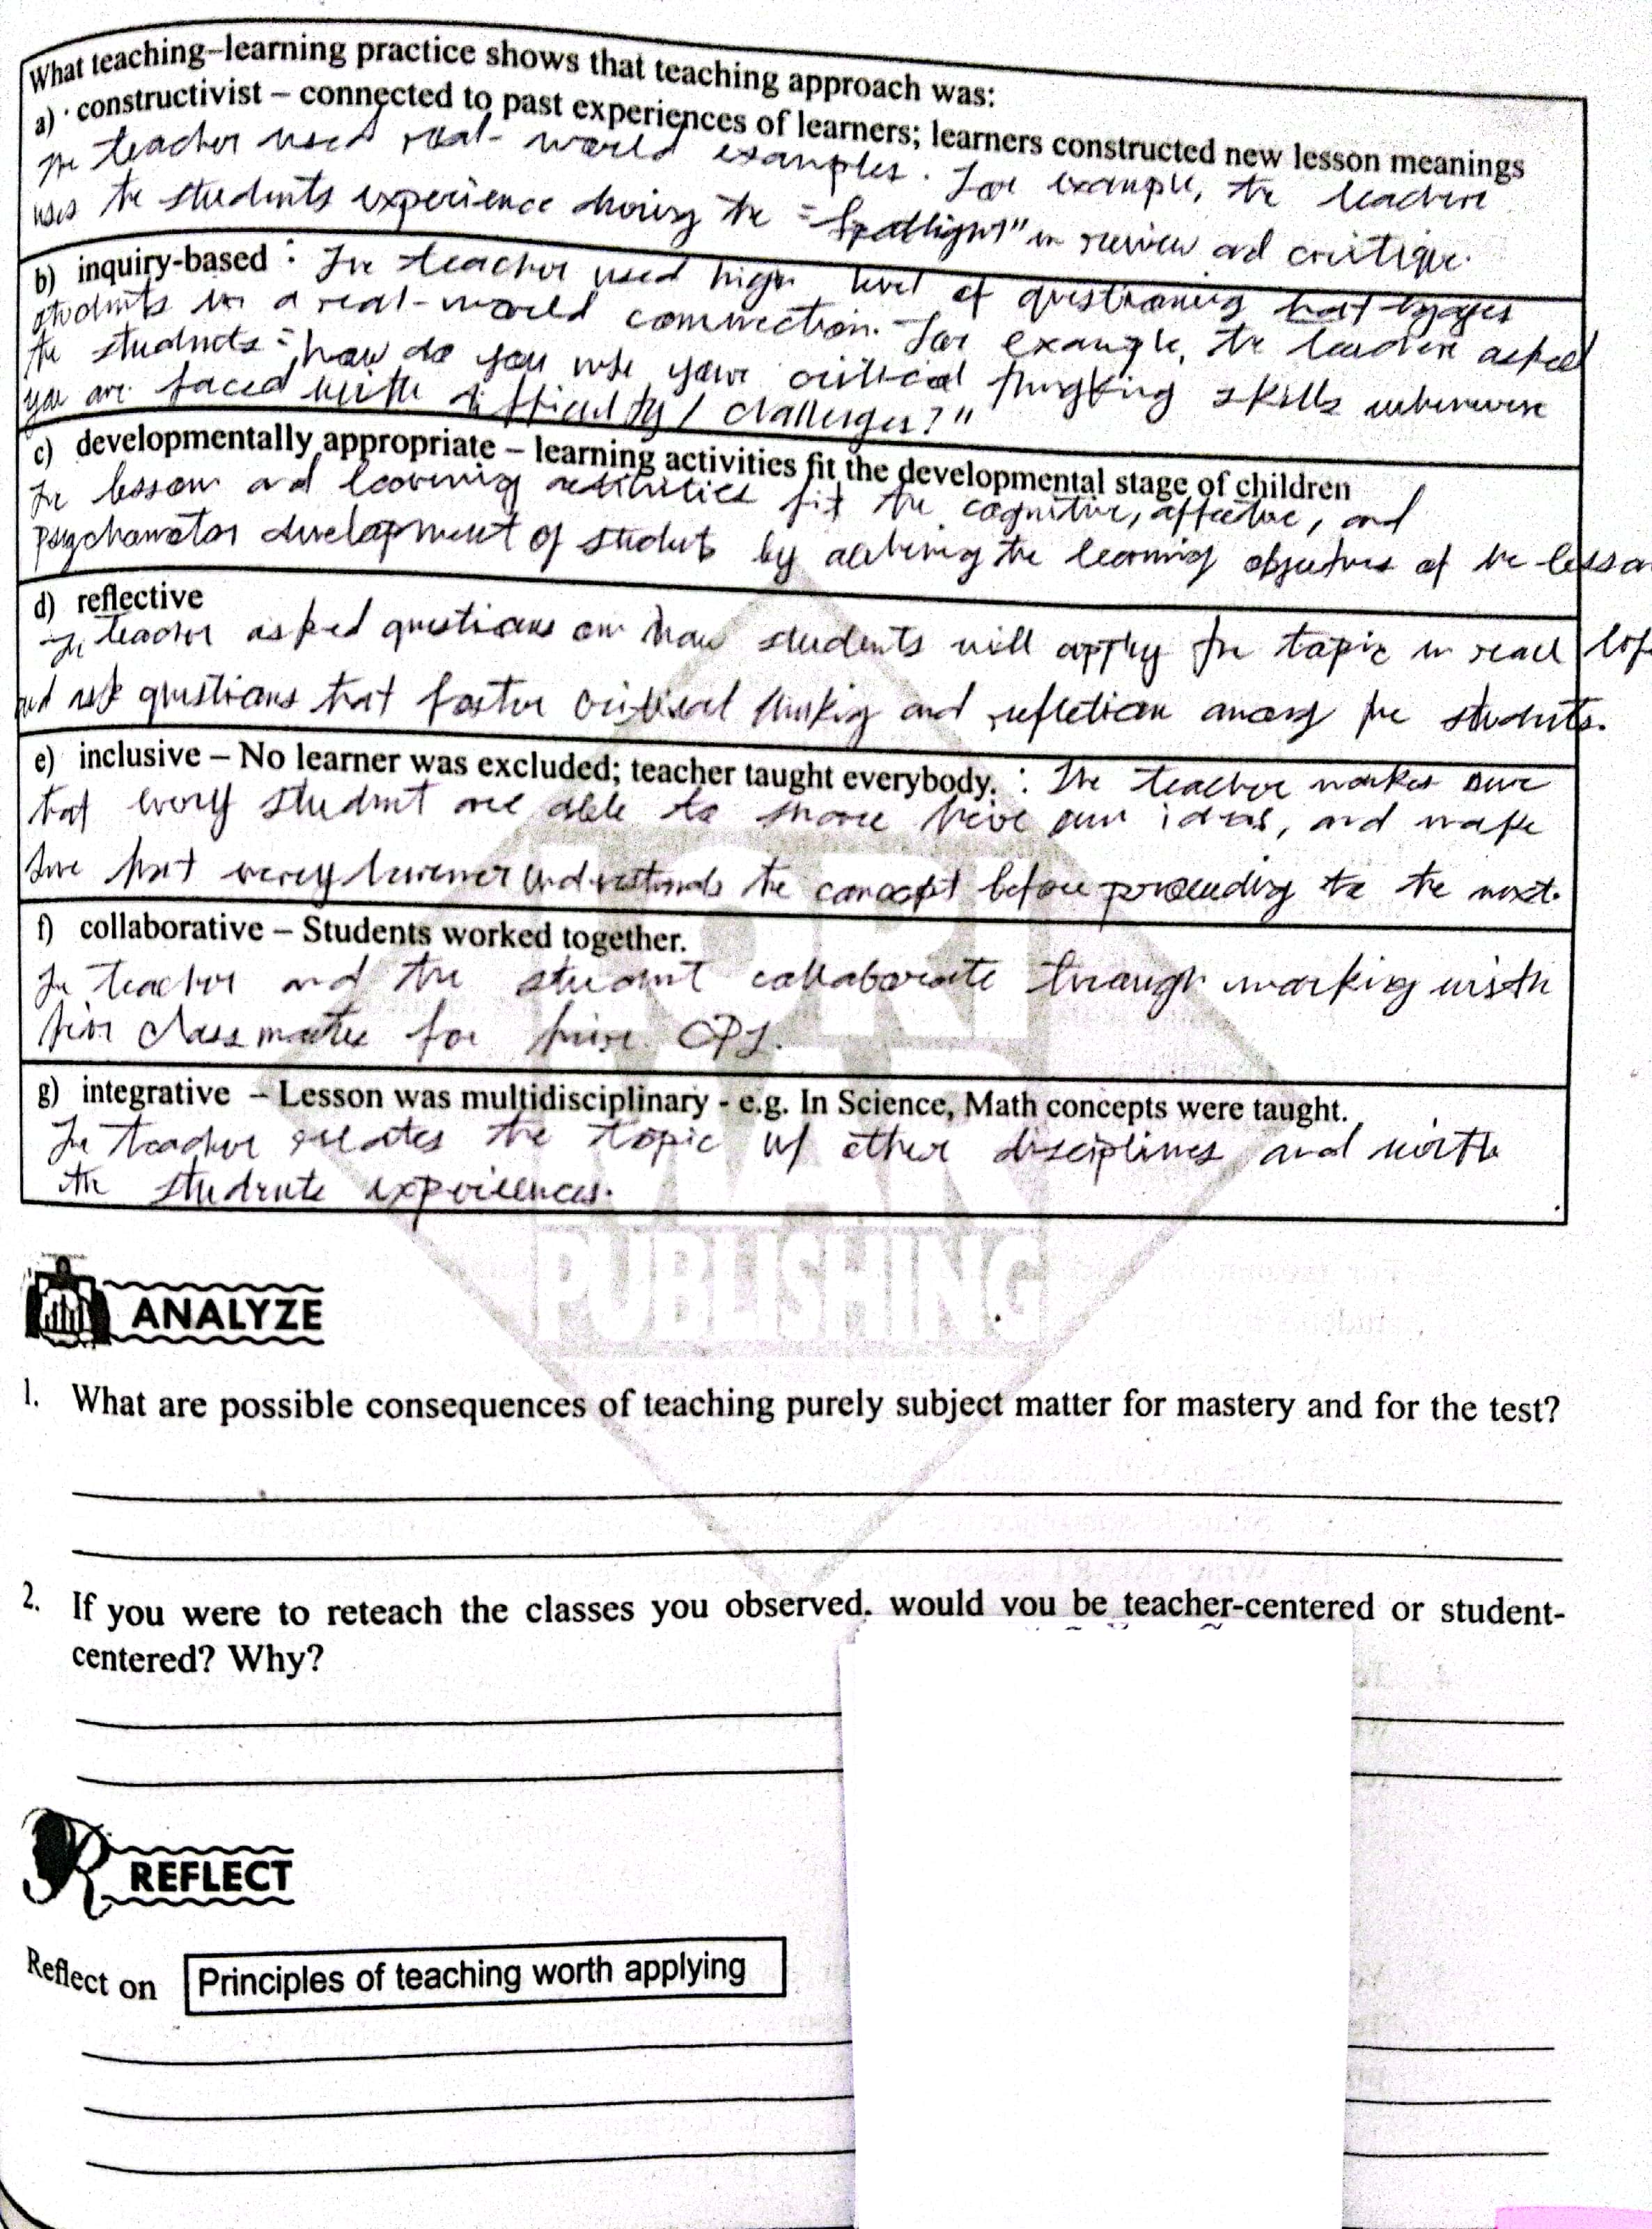 What teaching–learning practice shows that teaching approach was:
a) constructivist – connected to past experiences of learners; learners constructed new lesson meanings
The teacher used real-world examples. For example, the teacher
uses the students experience during the "Spotlight" in review and critique.
b) inquiry-based : The teacher used high level of questioning that engages
students in a real-world connection. For example, the teacher asked
the students "how do you use your critical thingking skills whenever
you are faced with difficulty / challenges?"
c) developmentally appropriate – learning activities fit the developmental stage of children
The lesson and learning activities fit the cognitive, affective, and
psychomotor development of students by achieving the learning objectives of the lesson
d) reflective
The teacher asked questions on how students will apply the topic in real life
and ask questions that foster critical thinking and reflection among the students.
e) inclusive – No learner was excluded; teacher taught everybody. : The teacher makes sure
that every student are able to share their own ideas, and make
sure that every learner understands the concept before proceeding to the next.
f) collaborative – Students worked together.
The teacher and the student collaborate through working with
their classmates for their
g) integrative – Lesson was multidisciplinary - e.g. In Science, Math concepts were taught.
The teacher relates the topic w/ other disciplines and with
the students experiences.
LORIMAR
PUBLISHING
ANALYZE
1. What are possible consequences of teaching purely subject matter for mastery and for the test?
2. If you were to reteach the classes you observed, would you be teacher-centered or student-
centered? Why?
REFLECT
Reflect on Principles of teaching worth applying